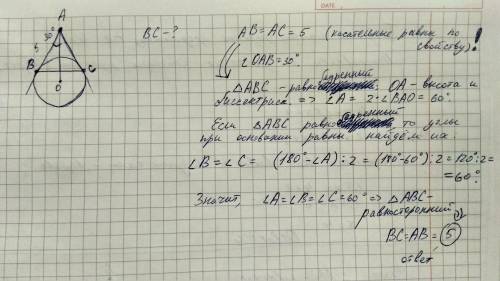 DATE
A
30°
5
B
C
O
BC - ?
AB = AC = 5 (касательные равны по свойству)!
∠OAB = 30°
△ABC - равнобедренный, OA - высота и
биссектриса. => ∠A = 2·∠BAO = 60°.
Если △ABC равнобедренный то углы
при основании равны найдём их.
∠B = ∠C = (180° - ∠A) : 2 = (180° - 60°) : 2 = 120° : 2 =
= 60°.
Значит, ∠A = ∠B = ∠C = 60° => △ABC -
равносторонний
BC = AB = 5
ответ